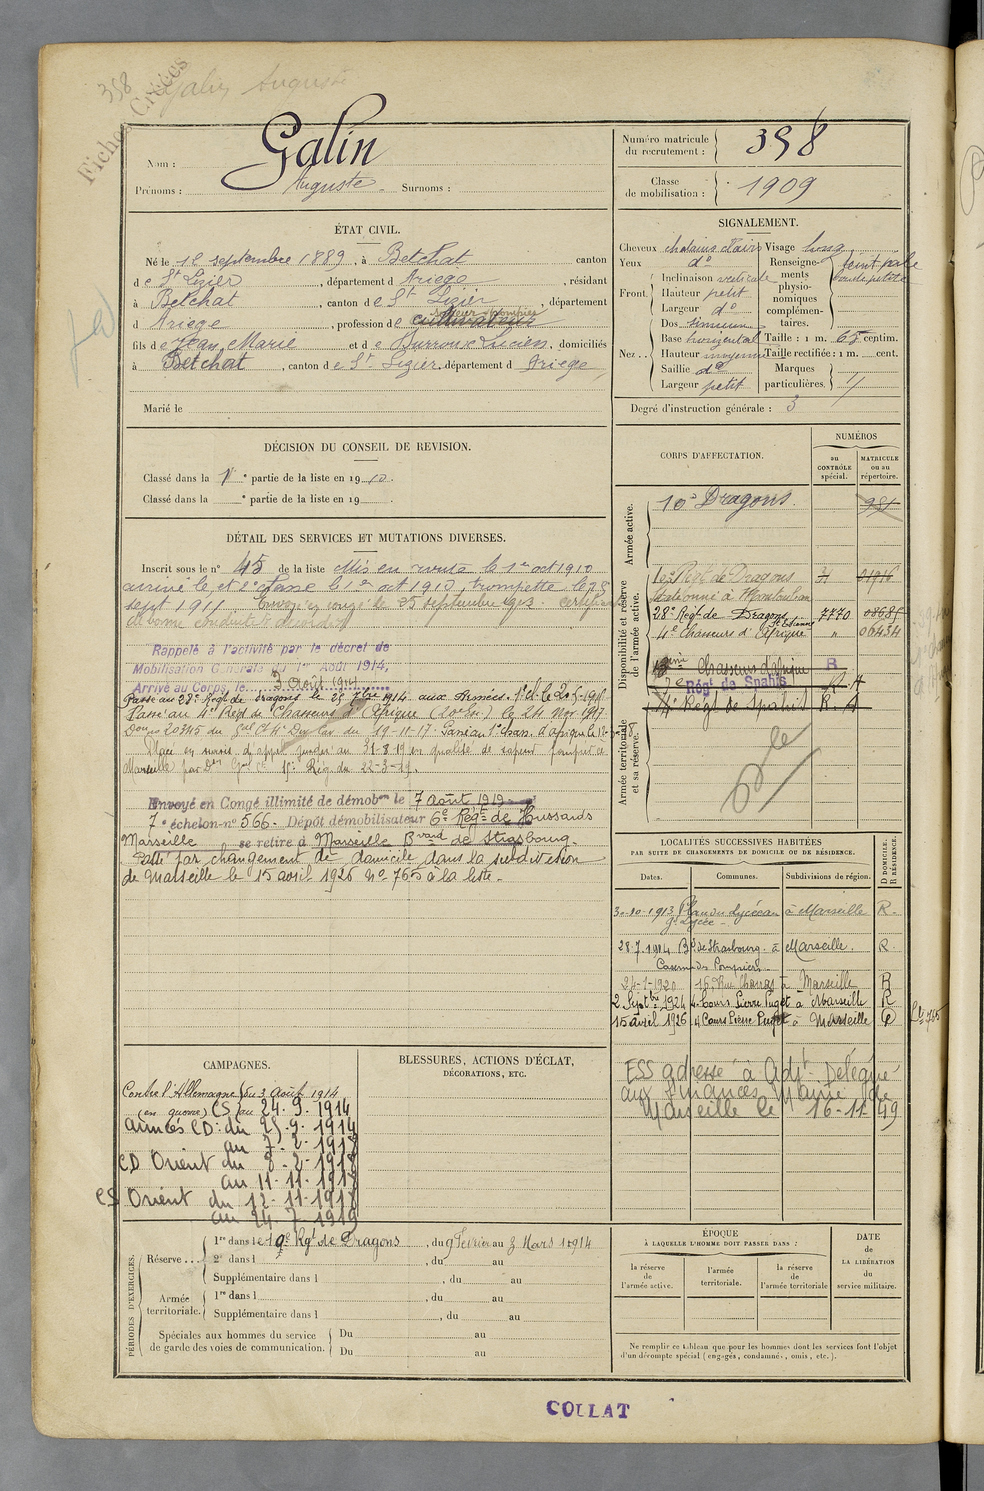 358
Galin Auguste
Fiches Créées
Nom : Galin
Prénoms : Auguste Surnoms :
Numéro matricule du recrutement : 358
Classe de mobilisation : 1909
ÉTAT CIVIL.
Né le 12 septembre 1889, à Betchat canton
de St Lizier, département d Ariège, résidant
à Betchat, canton de St Lizier, département
d Ariège, profession de cultivateur
sapeur pompier
fils de Jean Marie et de Burroux Lucien, domiciliés
à Betchat, canton de St Lizier, département d Ariège
Marié le
SIGNALEMENT.
Cheveux chatains clairs
Yeux do
Front. Inclinaison verticale
Hauteur petit
Largeur do
Nez Dos
Base horizontal
Hauteur moyenne
Saillie do
Largeur petit
Visage long
Renseignements physionomiques complémentaires.
teint pale
Taille : 1 m. 65 centim.
Taille rectifiée : 1 m. cent.
Marques particulières.
Degré d'instruction générale : 3
DÉCISION DU CONSEIL DE REVISION.
Classé dans la 1re partie de la liste en 1910.
Classé dans la e partie de la liste en 19 .
DÉTAIL DES SERVICES ET MUTATIONS DIVERSES.
Inscrit sous le n° 45 de la liste Mis en route le 1er oct 1910
arrivé le et 2e classe le 1er oct 1910, trompette le 28
sept 1911. Envoyé en congé le 25 septembre 1913. certificat
de bonne conduite accordé
Rappelé à l'activité par le décret de
Mobilisation Générale du 1er Août 1914,
Arrivé au Corps, le 3 Août 1914
Passé au 28e Régt de Dragons le 25 7bre 1914 aux Armées.
Passé au 4e Régt de Chasseurs d'Afrique le 24 Nov 1917
Passé au 1er Chas. d'Afrique le
Placé en sursis d'appel jusqu'au 31-8-19 en qualité de sapeur pompier à
Marseille par 22-3-19.
Envoyé en Congé illimité de démobon le 7 août 1919
7e échelon n° 566. Dépôt démobilisateur 6e Régt de Hussards
Marseille se retire à Marseille Bvard de Strasbourg.
Passé par changement de domicile dans la subdivision
de Marseille le 15 avril 1926 No 765 à la liste.
CORPS D'AFFECTATION.
NUMÉROS
au CONTRÔLE spécial.
MATRICULE ou au répertoire.
Armée active.
10e Dragons. 981
Disponibilité et réserve de l'armée active.
Régt de Dragons 01916
stationné à Montauban
28e Régt de Dragons 7770 08685
St Etienne
4e Chasseurs d'Afrique " 06434
Chasseurs d'Afrique R
Régt de Spahis R A
Régt de Spahis R. A
Armée territoriale et sa réserve.
LOCALITÉS SUCCESSIVES HABITÉES
PAR SUITE DE CHANGEMENTS DE DOMICILE OU DE RÉSIDENCE.
Dates. Communes. Subdivisions de région. D DOMICILE. R RÉSIDENCE.
30-10-1913 à Marseille R.
gd Lycée
28.7.1914 Bd de Strasbourg. à Marseille. R.
Caserne des Pompiers
24-1-1920 16 Rue Chanas à Marseille R
2 Septbre 1924 4 Cours Pierre Puget à Marseille R
15 avril 1926 4 Cours Pierre Puget à Marseille D
ESS adressé à Adjt Délégué
aux Finances Mairie de
Marseille le 16-11-49
CAMPAGNES.
Contre l'Allemagne du 3 Août 1914
(en guerre) CS au 24.9.1914
Armées CD: du 25-9-1914
au 7-2-1918
CD Orient du 8-2-1918
au 11-11-1918
CS Orient du 12-11-1918
au 24.7.1919
BLESSURES, ACTIONS D'ÉCLAT,
DÉCORATIONS, ETC.
PÉRIODES D'EXERCICES.
Réserve
1re dans le 19e Rgt de Dragons, du 9 Février au 3 Mars 1914
2e dans l , du au
Supplémentaire dans l , du au
Armée territoriale.
1re dans l , du au
Supplémentaire dans l , du au
Spéciales aux hommes du service de garde des voies de communication.
Du au
Du au
ÉPOQUE
À LAQUELLE L'HOMME DOIT PASSER DANS :
la réserve de l'armée active.
l'armée territoriale.
la réserve de l'armée territoriale
DATE de LA LIBÉRATION du service militaire.
Ne remplir ce tableau que pour les hommes dont les services font l'objet
d'un décompte spécial (engagés, condamnés, omis, etc.).
COLLAT